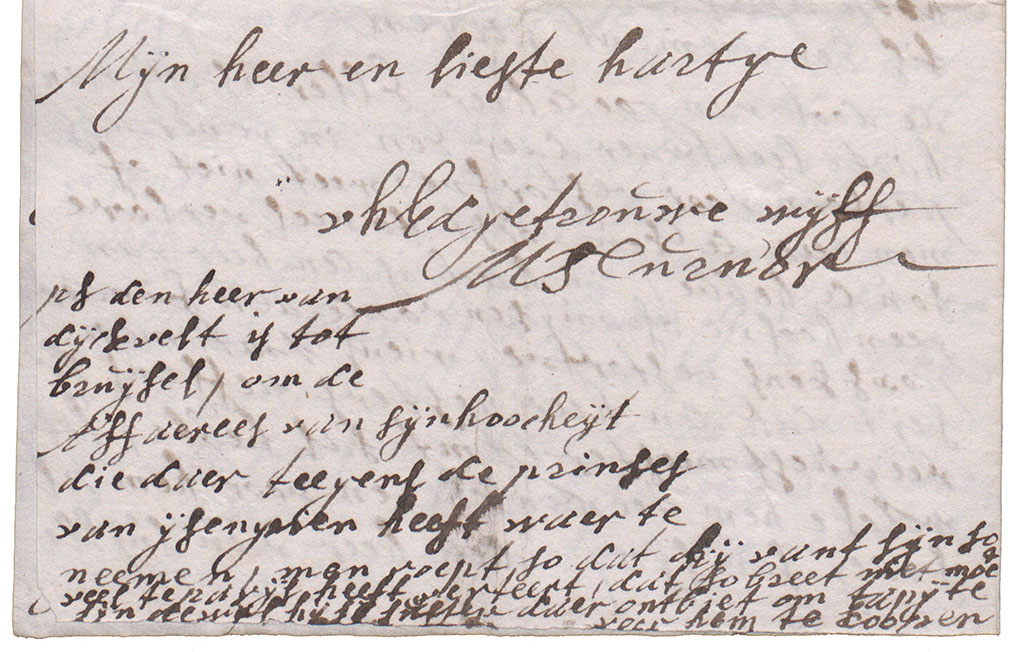 Mijn heer en lieste hartye
UhEd getrouwe wijff
M Turnor
ps den heer van
dijckvelt is tot
bruijsel, om de
affaerees van sijn hoocheijt
die daer teegens de prinses
van ysengien heeft waer te
neemen, men roept so dat hij vant sijn so
veel te parijs heeft verteert, dat so breet met moe
daer ontbiet om tapijte
voor hem te coopen